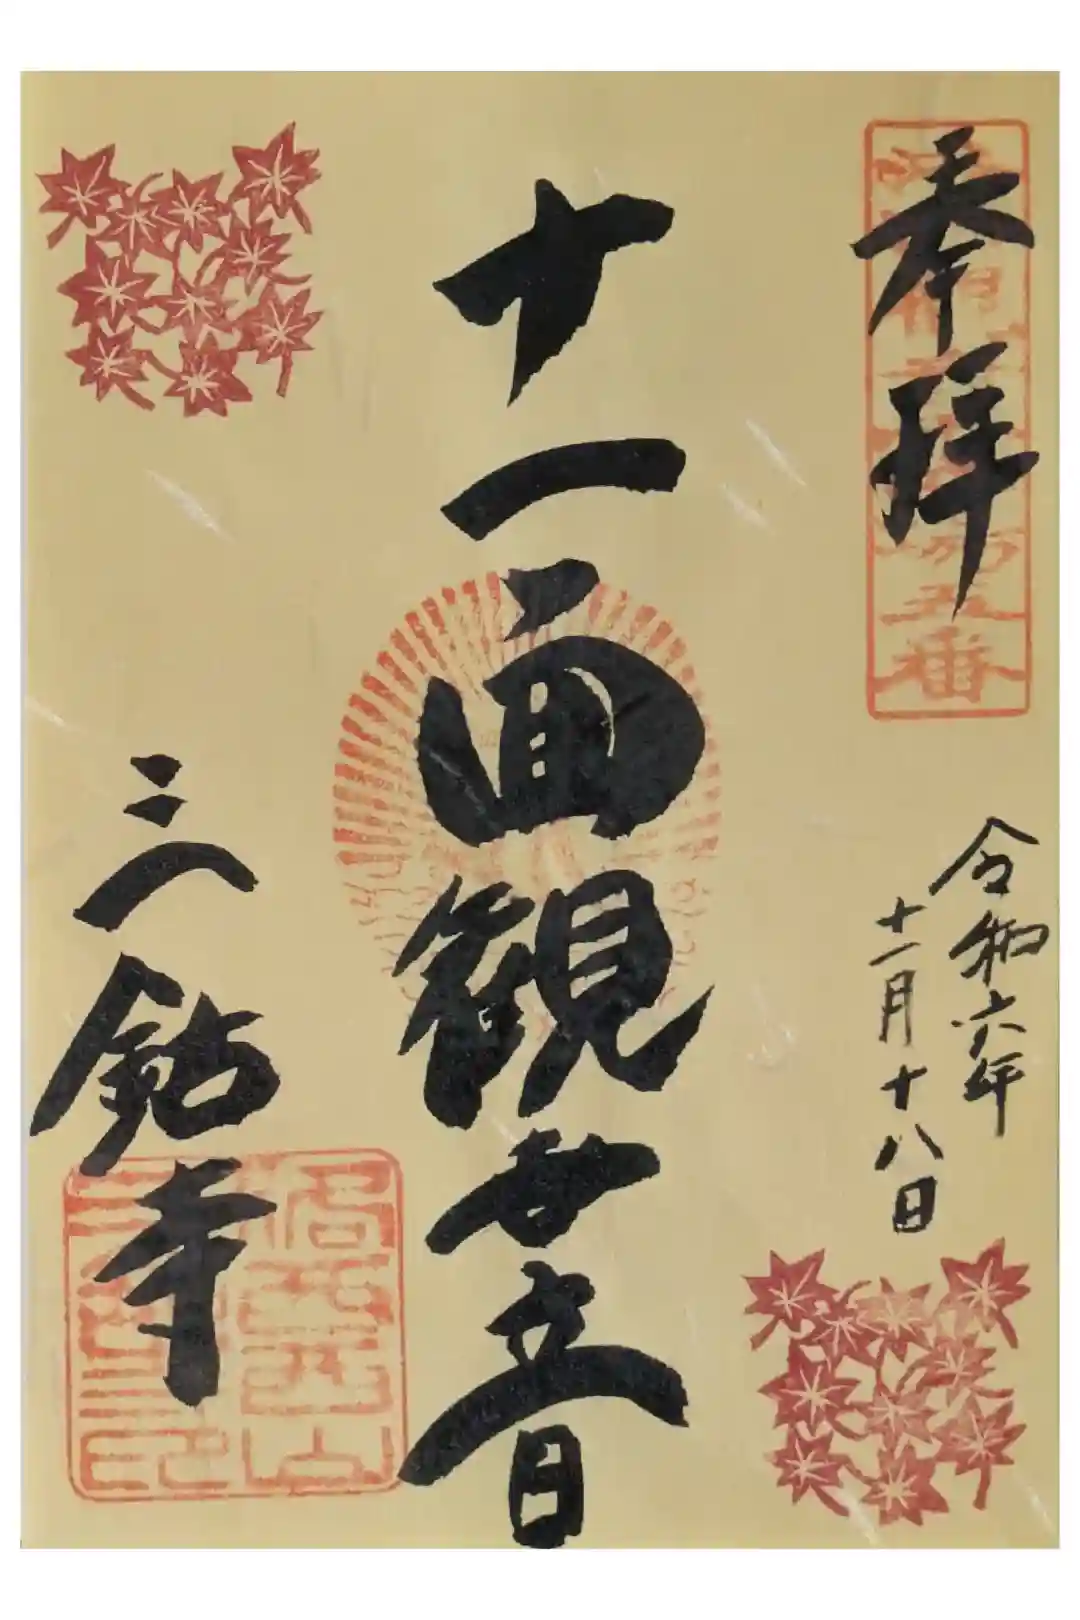 奉拝
五番
令和六年
十一月十八日
十一面観世音
三鈷寺